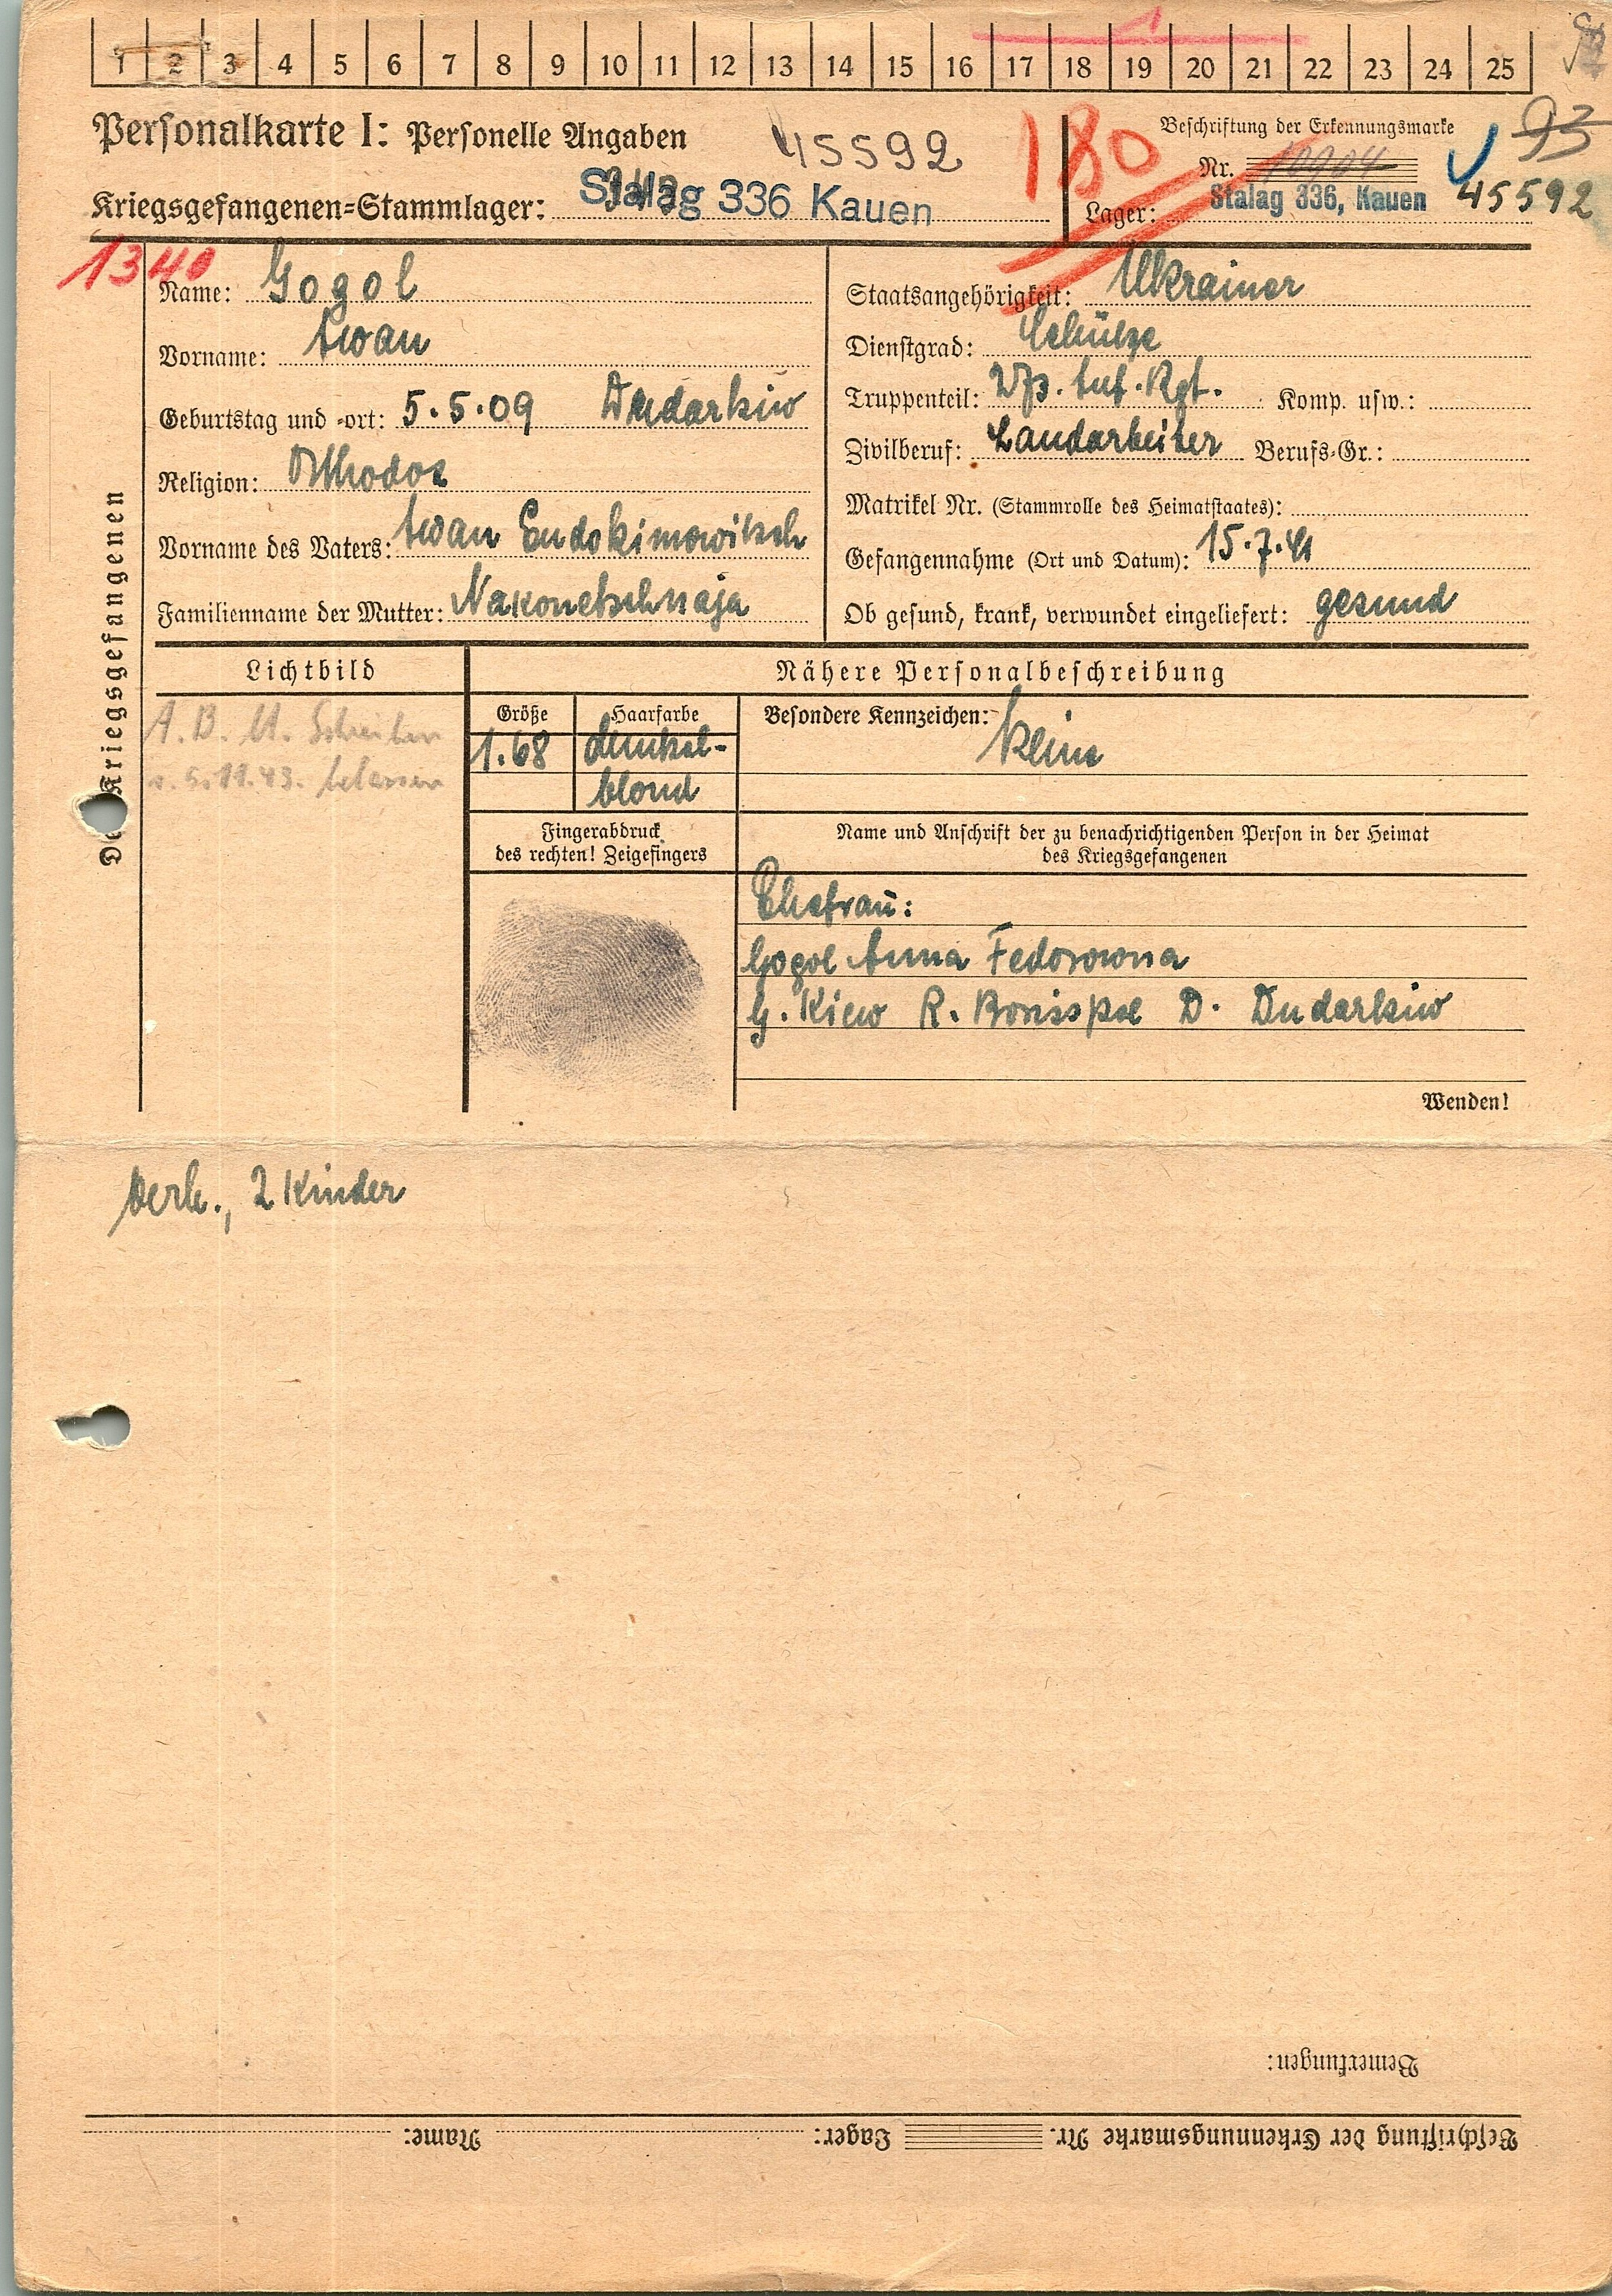 1 2 3 4 5 6 7 8 9 10 11 12 13 14 15 16 17 18 19 20 21 22 23 24 25
Personalkarte I: Personelle Angaben 45592
180
Beschriftung der Erkennungsmarke
93
Nr. 10904
Kriegsgefangenen-Stammlager: Stalag 336 Kauen
Lager: Stalag 336, Kauen 45592
1340
Des Kriegsgefangenen
Name: Gogol
Vorname: Iwan
Geburtstag und -ort: 5.5.09 Dudarkiw
Religion: Orthodox
Vorname des Vaters: Iwan Eudokimowitsch
Familienname der Mutter: Nakonetschnaja
Staatsangehörigkeit: Ukrainer
Dienstgrad: Schütze
Truppenteil: Inf. Rgt. Komp. usw.:
Zivilberuf: Landarbeiter Berufs-Gr.:
Matrikel Nr. (Stammrolle des Heimatstaates):
Gefangennahme (Ort und Datum): 15.7.41
Ob gesund, krank, verwundet eingeliefert: gesund
Lichtbild
A. B. U. Schreiben
v. 5.11.43.
Nähere Personalbeschreibung
Größe Haarfarbe Besondere Kennzeichen: keine
1.68 dunkel-
blond
Fingerabdruck
des rechten! Zeigefingers
Name und Anschrift der zu benachrichtigenden Person in der Heimat
des Kriegsgefangenen
Ehefrau:
Gogol Anna Fedorowna
G. Kiew R. Borispol D. Dudarkiw
Wenden!
Verh., 2 Kinder
Bemerkungen:
Beschriftung der Erkennungsmarke Nr. Lager: Name: